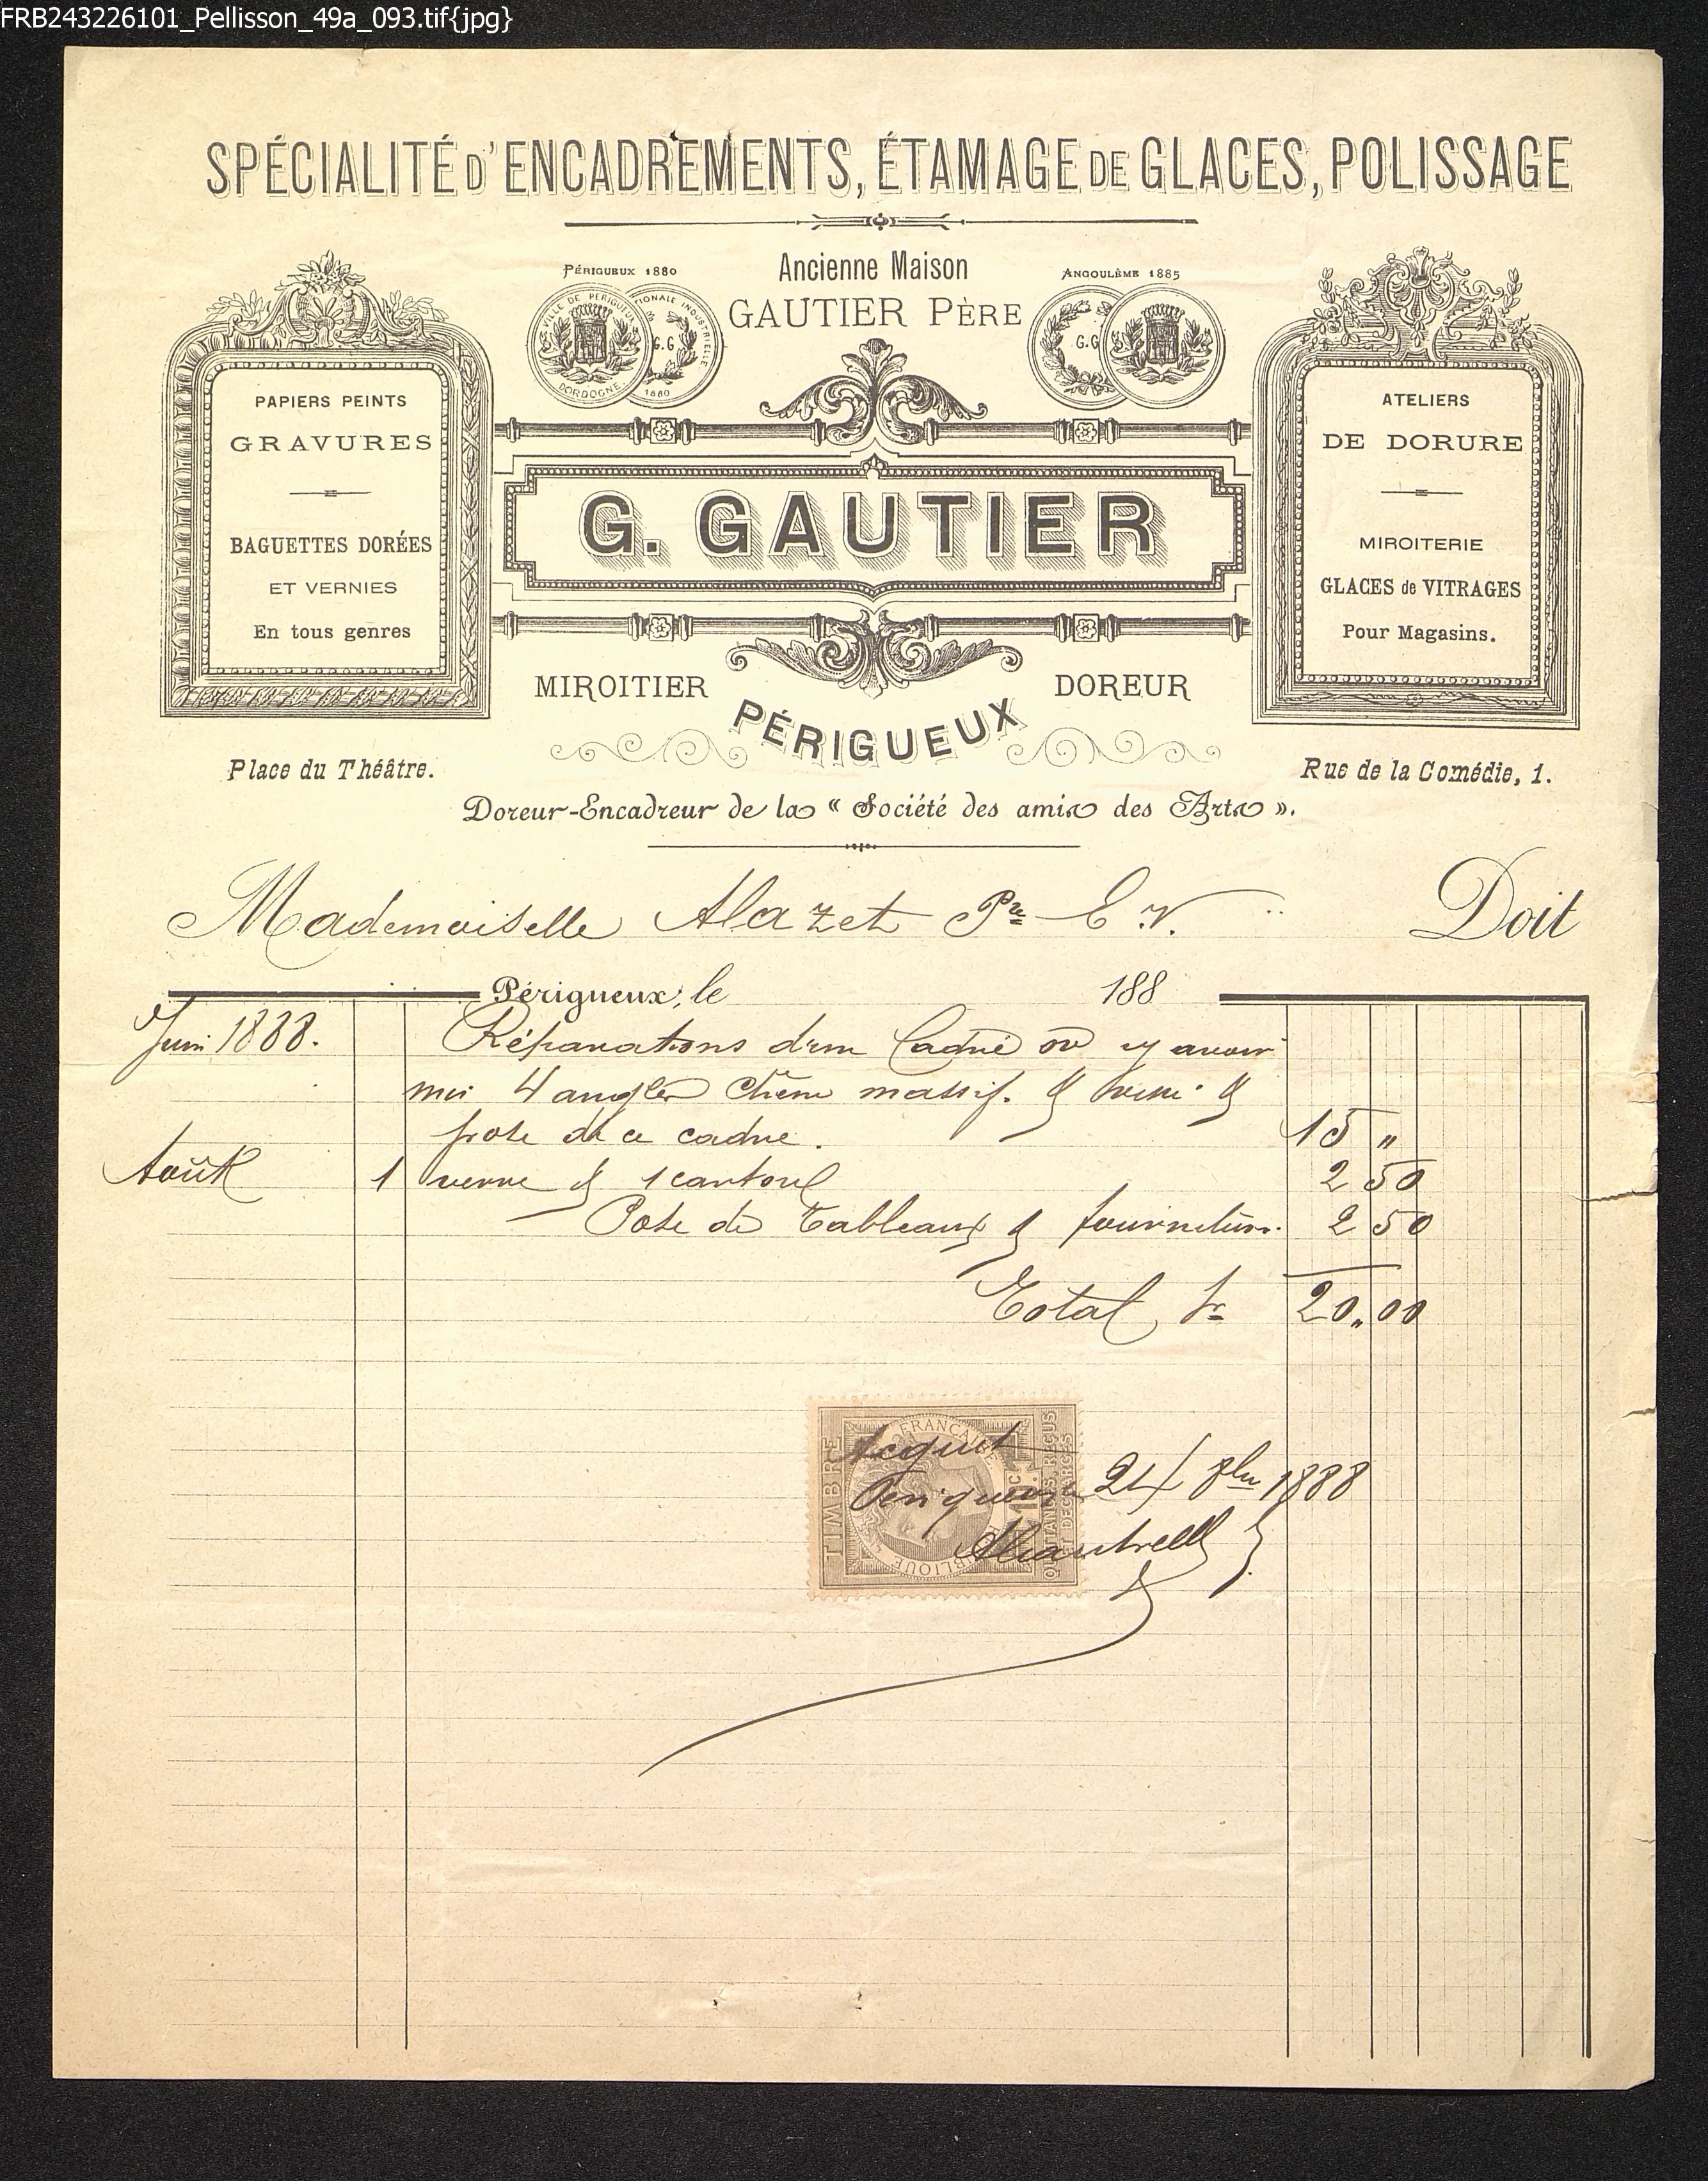 FRB243226101_Pellisson_49a_093.tif{jpg}
SPÉCIALITÉ D'ENCADREMENTS, ÉTAMAGE DE GLACES, POLISSAGE
Ancienne Maison
GAUTIER PÈRE
PÉRIGUEUX 1880
VILLE DE PÉRIGUEUX
DORDOGNE
INDUSTRIELLE
G.G
1880
ANGOULÊME 1885
G.G
PAPIERS PEINTS
GRAVURES
BAGUETTES DORÉES
ET VERNIES
En tous genres
G. GAUTIER
ATELIERS
DE DORURE
MIROITERIE
GLACES de VITRAGES
Pour Magasins.
MIROITIER
DOREUR
PÉRIGUEUX
Place du Théâtre.
Rue de la Comédie, 1.
Doreur-Encadreur de la « Société des amis des Arts ».
Mademoiselle Alazet Pre E. V. Doit
Périgueux, le 188
Juin 1888. Réparations d'un Cadre ou y avoir
mis 4 angles Chêne massif. & &
pose de ce cadre. 15 "
Août 1 verre & 1 carton 2 50
Pose de tableaux & fournitures. 2 50
Total fr 20.00
TIMBRE
RÉPUBLIQUE FRANÇAISE
10 C.
QUITTANCES, REÇUS
ET DÉCHARGES
Acquit
Périgueux le 24 8bre 1888